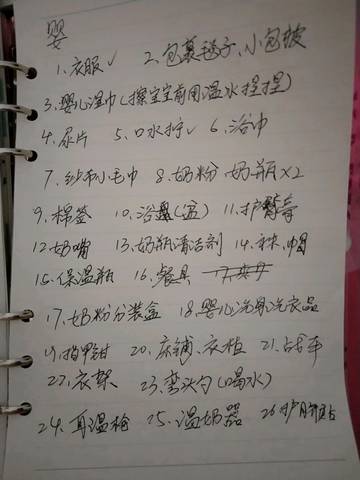 婴
1、衣服✓ 2、包裹毯子、小包被
3、婴儿湿巾(擦宝宝前用温水捏捏)
4、尿片 5、口水拧✓ 6、浴巾
7、纱布小毛巾 8、奶粉 奶瓶×2
9、棉签 10、浴盘(盆) 11、护臀膏
12、奶嘴 13、奶瓶清洁剂 14、袜、帽
15、保温瓶 16、餐具
17、奶粉分装盒 18、婴儿洗身洗衣品
19、指甲钳 20、床铺、衣柜 21、战车
22、衣架 23、弯头勺(喝水)
24、耳温枪 25、温奶器 26、护脐贴